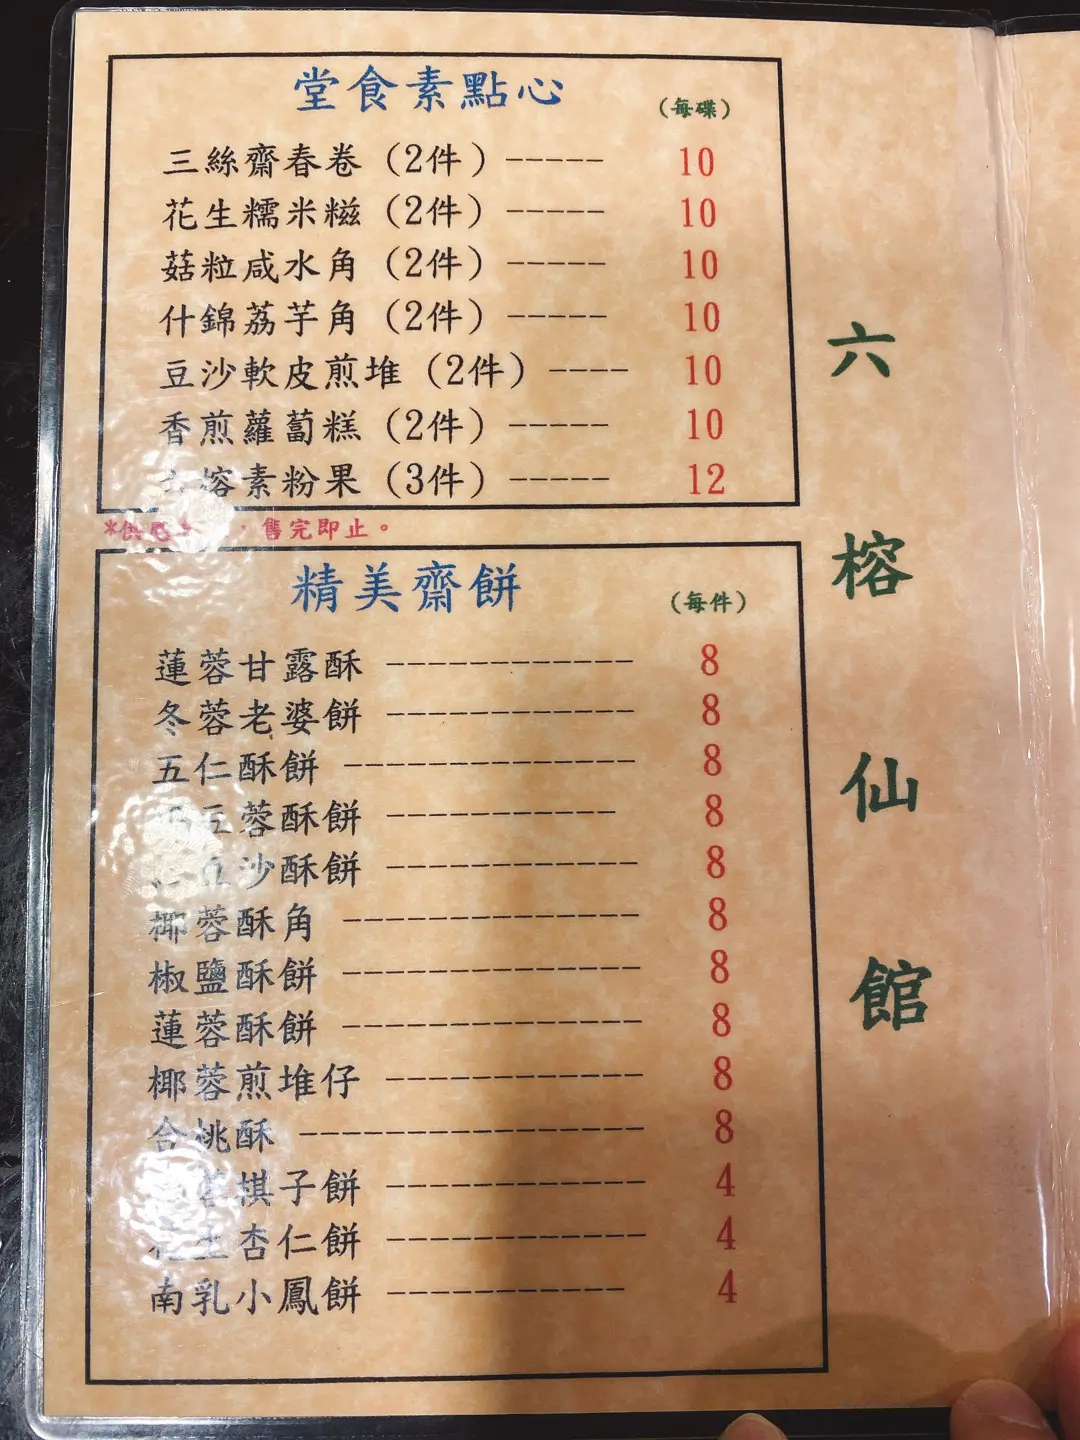 堂食素點心 (每碟)
三絲齋春卷 (2件) ----- 10
花生糯米糍 (2件) ----- 10
菇粒咸水角 (2件) ----- 10
什錦荔芋角 (2件) ----- 10
豆沙軟皮煎堆 (2件) ---- 10
香煎蘿蔔糕 (2件) ----- 10
六榕素粉果 (3件) ----- 12
*供應 ，售完即止。
精美齋餅 (每件)
蓮蓉甘露酥 ------------ 8
冬蓉老婆餅 ------------ 8
五仁酥餅 -------------- 8
豆蓉酥餅 ----------- 8
豆沙酥餅 ------------ 8
椰蓉酥角 -------------- 8
椒鹽酥餅 -------------- 8
蓮蓉酥餅 -------------- 8
椰蓉煎堆仔 ------------ 8
合桃酥 ---------------- 8
蓉棋子餅 ------------ 4
生杏仁餅 ------------ 4
南乳小鳳餅 ----------- 4
六榕仙館